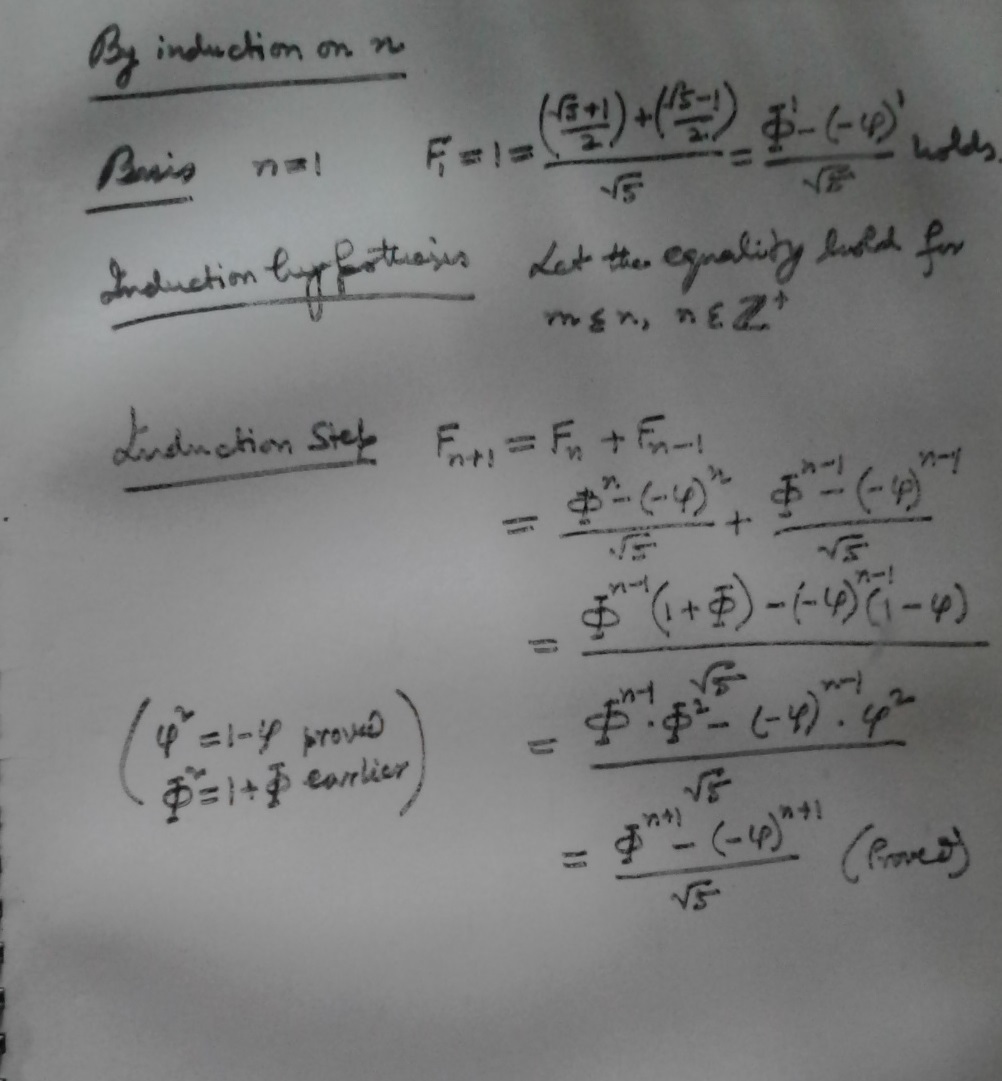 By induction on n
Basis n=1 F₁ = 1 = ((√5+1)/2) + ((√5-1)/2) / √5 = Φ¹ - (-φ)¹ / √5 holds.
Induction hypothesis Let the equality hold for
m ≤ n, n ∈ ℤ⁺
Induction Step Fₙ₊₁ = Fₙ + Fₙ₋₁
= Φⁿ - (-φ)ⁿ / √5 + Φⁿ⁻¹ - (-φ)ⁿ⁻¹ / √5
= Φⁿ⁻¹(1+Φ) - (-φ)ⁿ⁻¹(1-φ) / √5
(φ² = 1-φ proved
Φ² = 1+Φ earlier)
= Φⁿ⁻¹·Φ² - (-φ)ⁿ⁻¹·φ² / √5
= Φⁿ⁺¹ - (-φ)ⁿ⁺¹ / √5 (Proved)